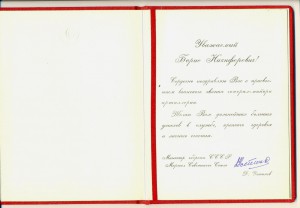 Уважаемый
Борис Никифорович!
Сердечно поздравляем Вас с присвое-
нием воинского звания генерал-майора
артиллерии.
Желаем Вам дальнейших больших
успехов в службе, крепкого здоровья
и личного счастья.
Министр обороны СССР
Маршал Советского Союза
Д. Устинов